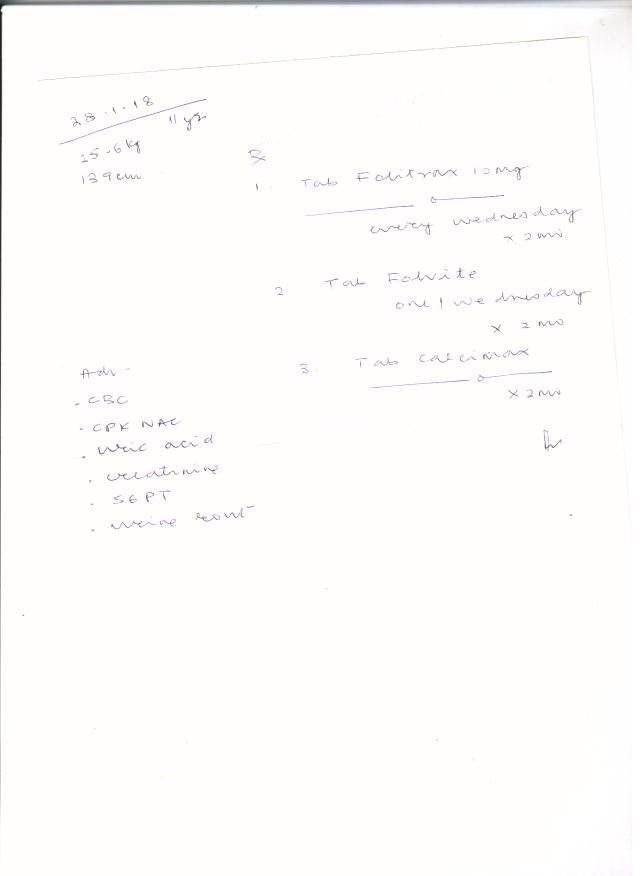 28.1.18
11 yr
25.6 kg
139 cm
Rx
1. Tab Folitrax 10mg
every wednesday
x 2 mo
2 Tab Folvite
one / wednesday
x 2 mo
3. Tab Calcimax
x 2 mo
Adv.
- CBC
. CPK NAC
. Uric acid
. creatinine
. SGPT
. urine rout